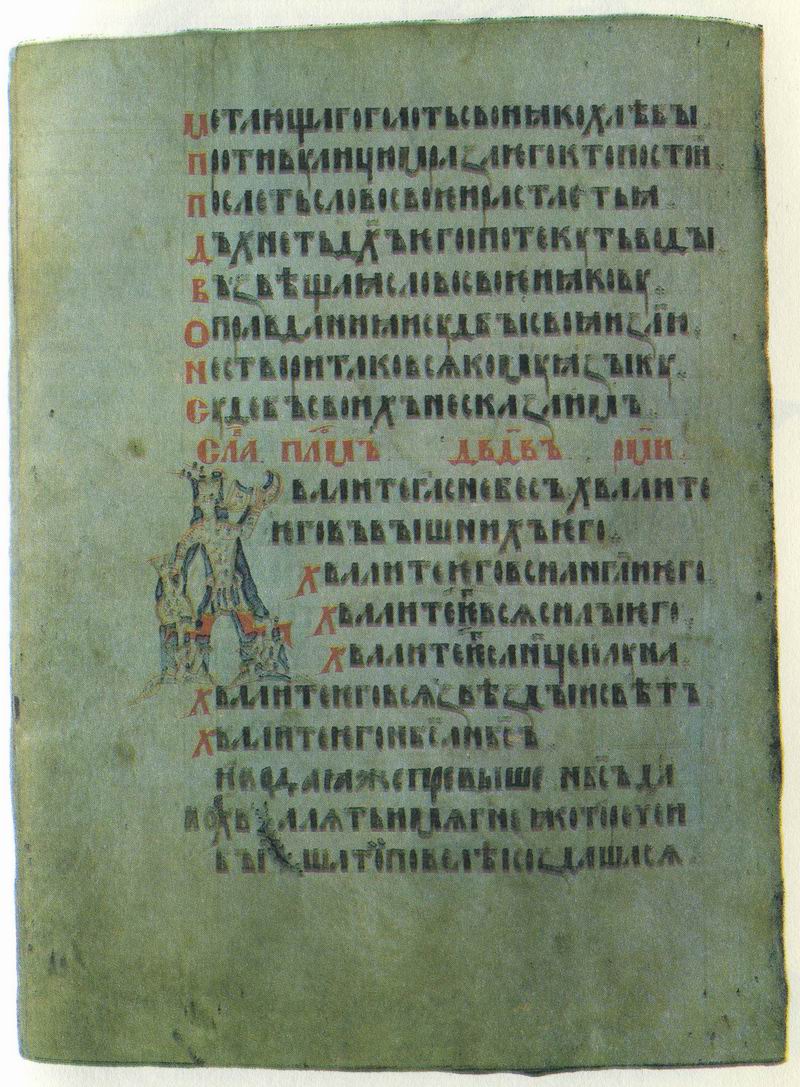 Метлющлгоголотьсвоꙗꙗкохлѣбы
Противꙋлицицюмразлѥгоктопостои
Послетьсловосвоѥирастаѥтьꙗ
Дъхнетьд҃хъѥгоипотекꙋтьводы
Възвѣщлꙗсловосвоѥиꙗковꙋ
Оправданиꙗисꙋдбысвоꙗиз҃ли
Нестворитаковсѧкомꙋꙗзыкꙋ
Сꙋдебъсвоихънесказаимъ
Сла псл҃мъ дв҃двъ рм҃и
Хвалитег҃аснебесъхвалите
ѥговъвышнихъѥго
Хвалитеѥговсиан҃глиѥго
Хвалитеѥ҃гвсѧсилыѥго
Хвалитеѥ҃гсл҃нцеилꙋна
Хвалитеѥговсѧзвѣздыисвѣтъ
Хвалитеѥгонб҃санб҃съ
иводаꙗжепревышенб҃съда
похвалѧтьимѧг҃неꙗкотъреч҃еи
выша тъповелѣисоздашасѧ